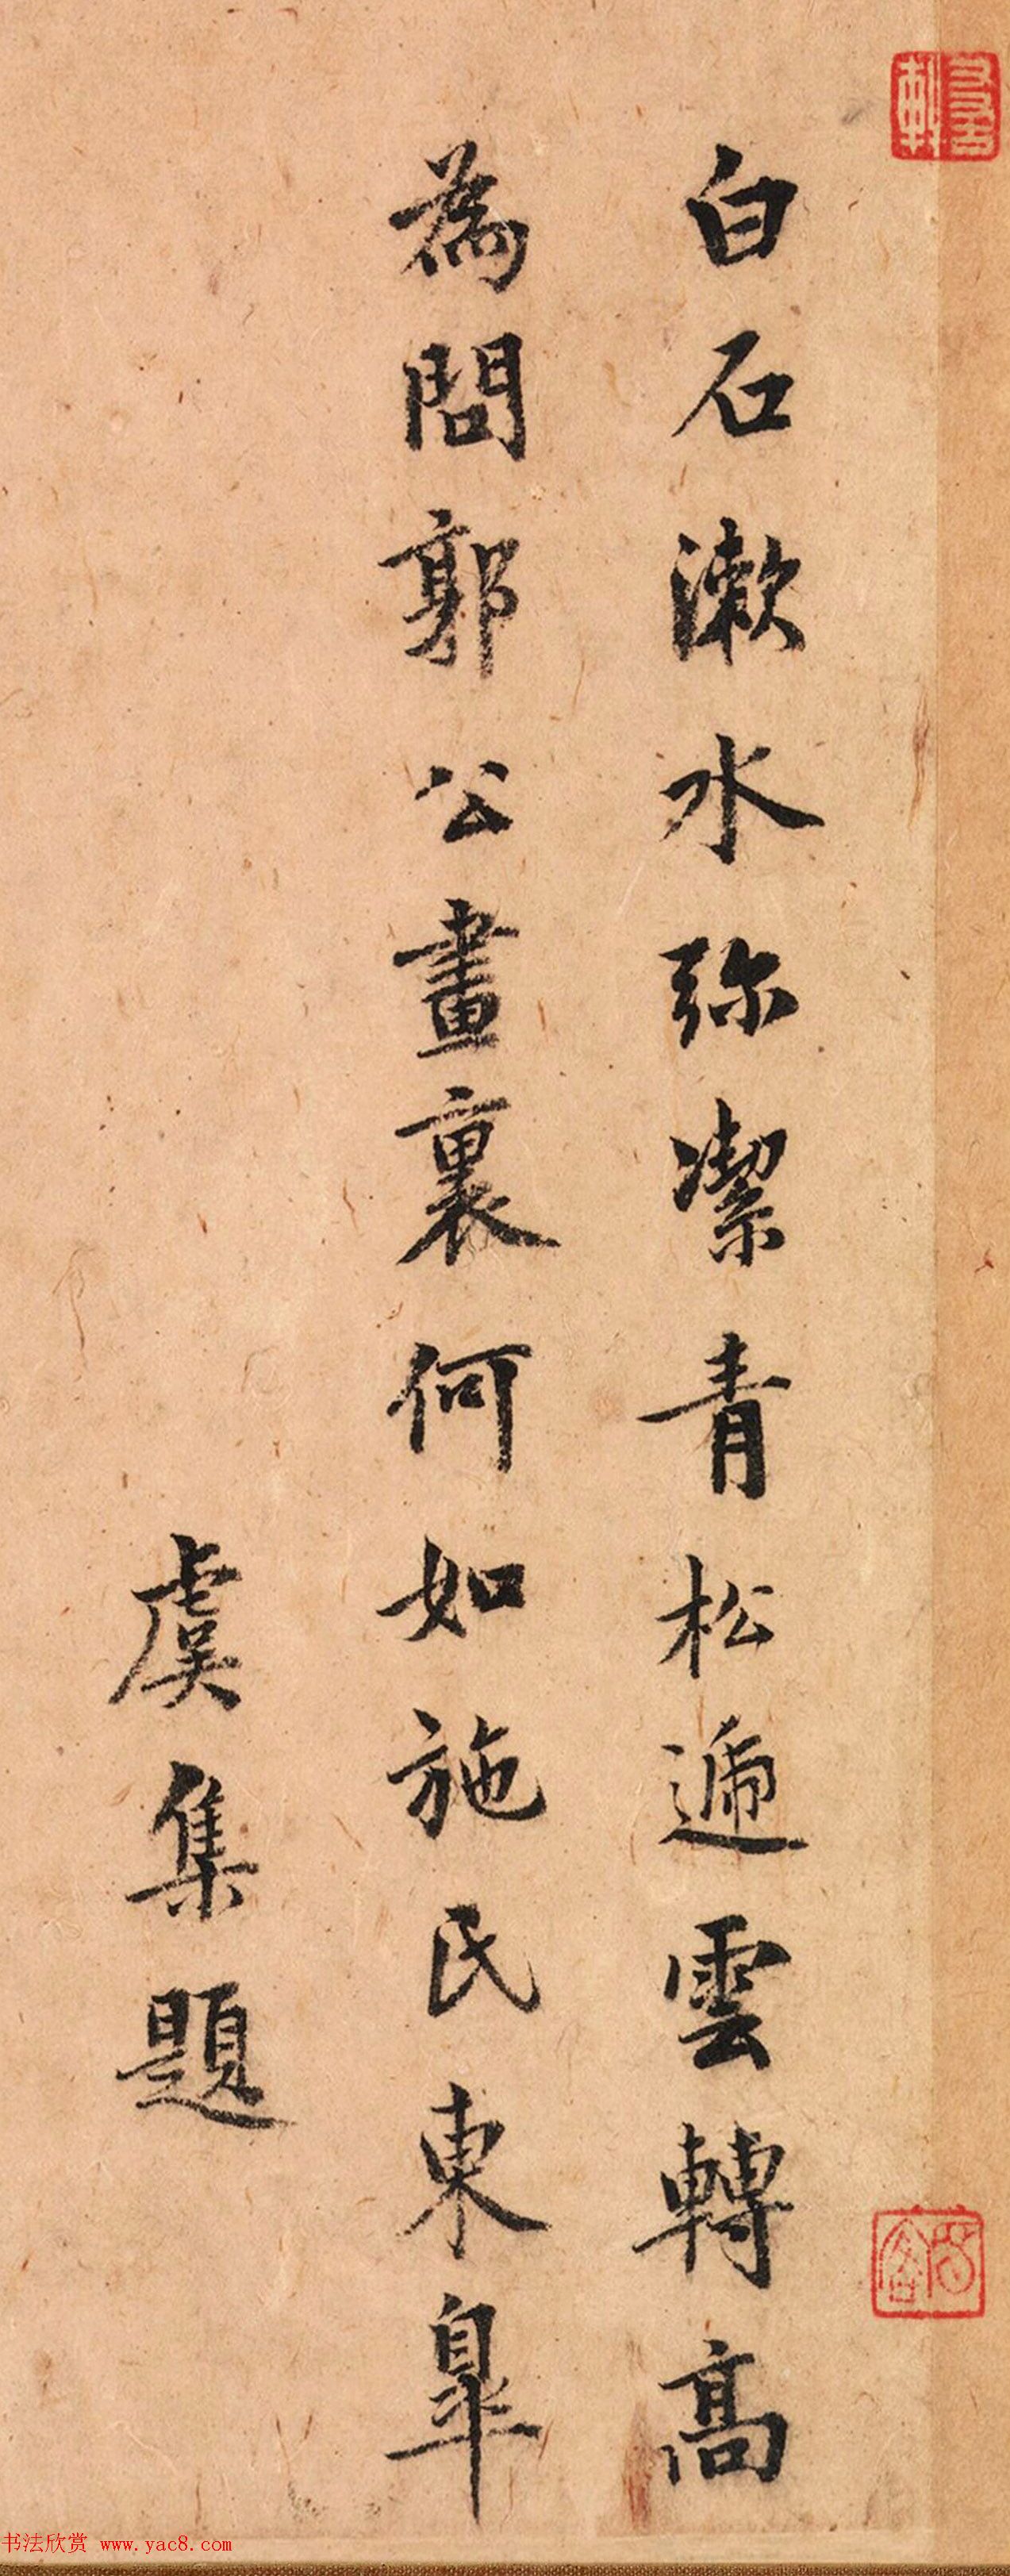 白石漱水弥潔青松遞雲轉高
為問郭公畫裏何如施民東皐
虞集題
书法欣赏 www.yac8.com